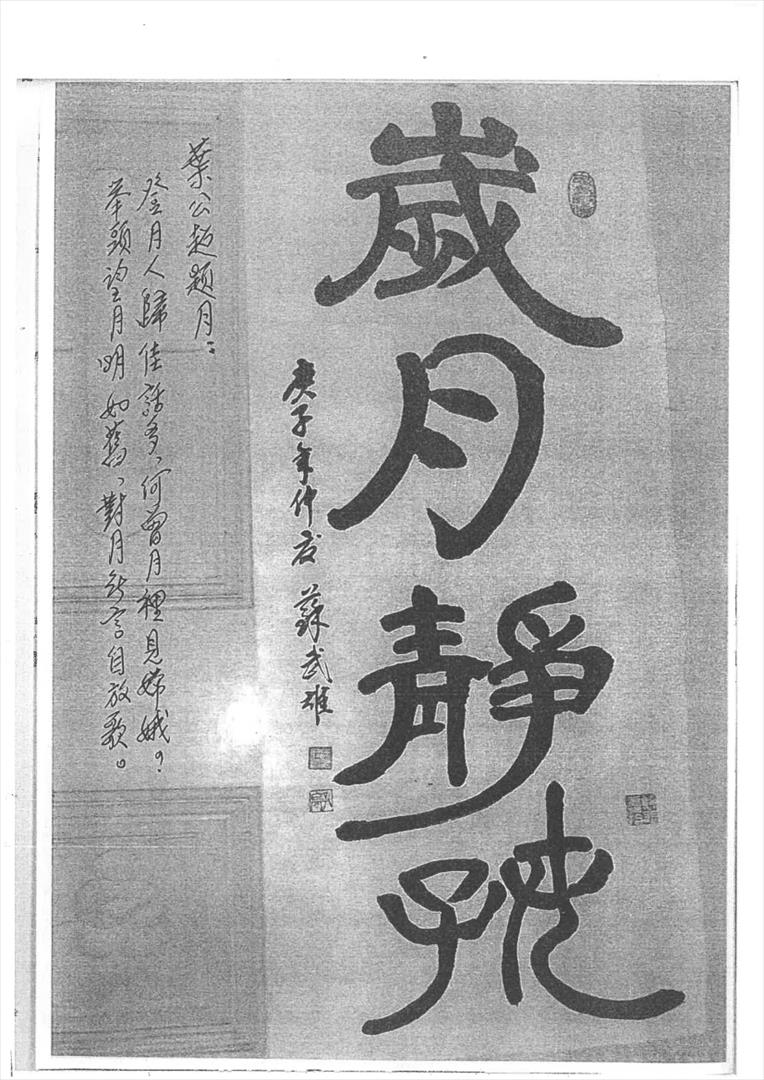 歲月靜好
庚子年仲夏 蘇武雄
葉公超題月：
登月人歸佳話多，何曾月裡見嫦娥？
举頭望月明如舊，對月無言自放歌。